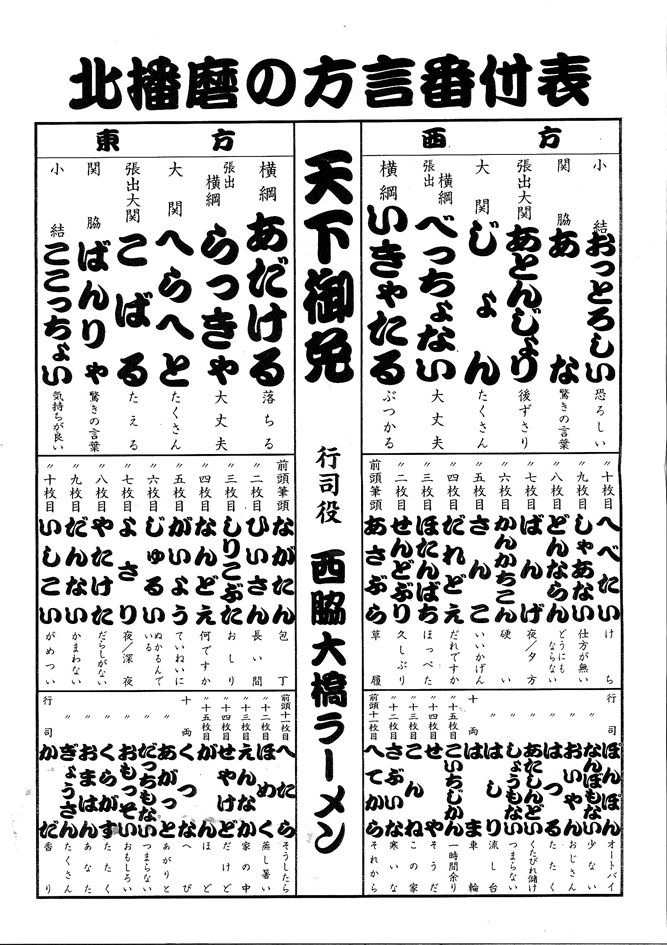 北播磨の方言番付表
西方
小結 おっとろしい 恐ろしい
関脇 あな 驚きの言葉
張出大関 あとんじょり 後ずさり
大関 じょん たくさん
張出横綱 べっちょない 大丈夫
横綱 いきゃたる ぶつかる
〃十枚目 へべたい けち
〃九枚目 しゃあない 仕方が無い
〃八枚目 どんならん どうにもならない
〃七枚目 ばんげ 夜/夕方
〃六枚目 かんかちこん 硬い
〃五枚目 さんこ いいかげん
〃四枚目 だれどえ だれですか
〃三枚目 ほたんばち ほっぺた
〃二枚目 せんどぶり 久しぶり
前頭筆頭 あさぶら 草履
行司 ぽんぽん オートバイ
〃 なんぼもない 少ない
〃 おいやん おじさん
〃 はつる たたく
〃 あたしんどい くたびれ儲け
〃 しょうもない つまらない
〃 はしり 流し台
十両 はま 車輪
〃十五枚目 こいちじかん 一時間余り
〃十四枚目 せや そうだ
〃十三枚目 こんね この家
〃十二枚目 さぶいな 寒いな
前頭十一枚目 へてから それから
天下御免
行司役 西脇大橋ラーメン
東方
横綱 あだける 落ちる
張出横綱 らっきゃ 大丈夫
大関 へらへと たくさん
張出大関 こばる たえる
関脇 ばんりゃ 驚きの言葉
小結 ここっちょい 気持ちが良い
前頭筆頭 ながたん 包丁
〃二枚目 ひいさん 長い間
〃三枚目 しりこぶた おしり
〃四枚目 なんどえ 何ですか
〃五枚目 がいよう ていねいに
〃六枚目 じゅるい ぬかるんでいる
〃七枚目 よさり 夜/深夜
〃八枚目 やたけた だらしがない
〃九枚目 だんない かまわない
〃十枚目 いしこい がめつい
前頭十一枚目 へたら そうしたら
〃十二枚目 ほめく 蒸し暑い
〃十三枚目 えんなか 家の中
〃十四枚目 せやけど だけど
〃十五枚目 がん ほど
十両 くつな へび
〃 あがっと あがりと
〃 だっちもない つまらない
〃 おもっそい おもしろい
〃 くらがす たたく
〃 おまはん あなた
〃 ぎょうさん たくさん
行司 かだ 香り